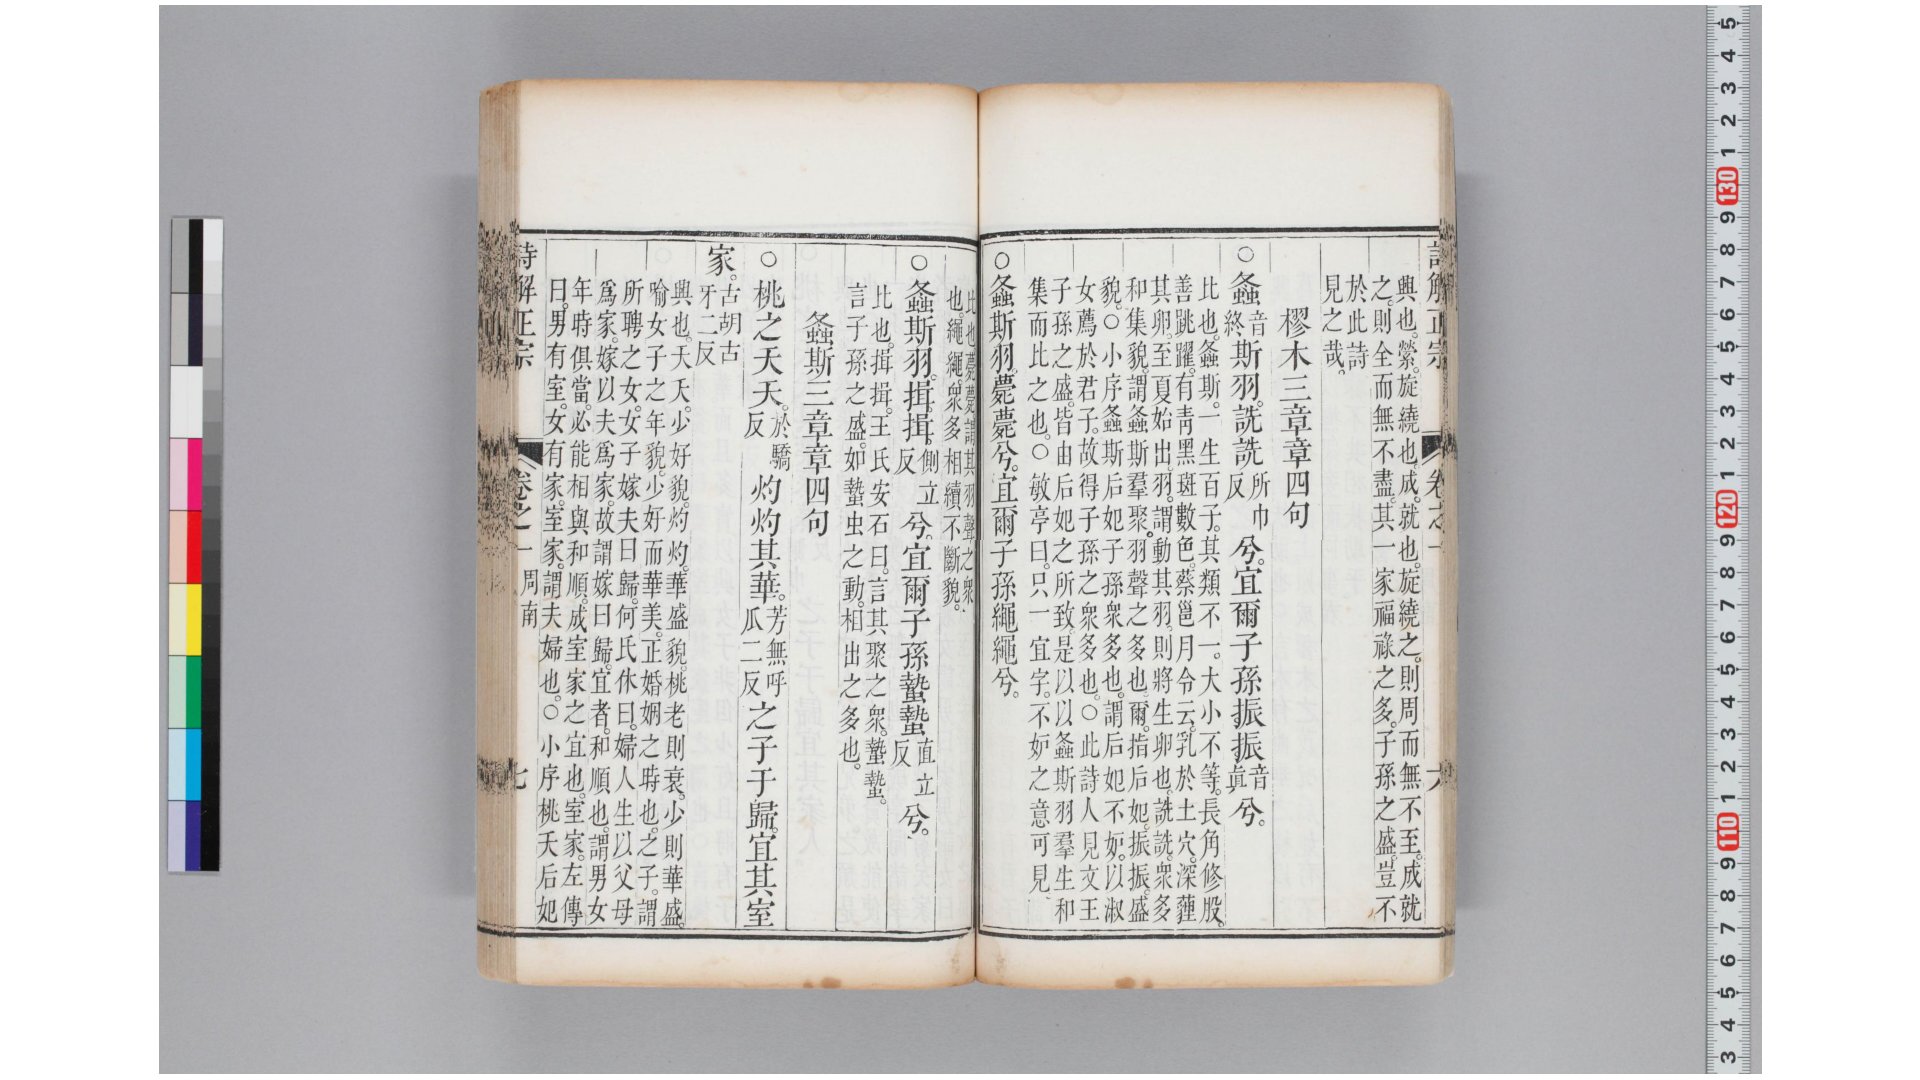 詩解正宗 卷之一 六
興也。縈。旋繞也。成。就也。旋繞之。則周而無不至。成就
之。則全而無不盡。其一家福祿之多。子孫之盛。豈不
於此詩
見之哉。
樛木三章章四句
○螽音終斯羽。詵詵所巾反兮。宜爾子孫振振音眞兮。
比也。螽斯。一生百子。其類不一。大小不等。長角修股。
善跳躍。有靑黑斑數色。蔡邕月令云。乳於土穴。深薶
其卵。至夏始出。羽。謂動其羽。則將生卵也。詵詵。衆多
和集貌。謂螽斯羣聚。羽聲之多也。爾。指后妃。振振。盛
貌。○小序螽斯后妃子孫衆多也。謂后妃不妒。以淑
女薦於君子。故得子孫之衆多也。○此詩人見文王
子孫之盛。皆由后妃之所致。是以以螽斯羽羣生和
集而比之也。○敏亭曰。只一宜字。不妒之意可見
○螽斯羽。薨薨兮。宜爾子孫繩繩兮。
比也。薨薨。謂其羽聲之衆
也。繩繩。衆多相續不斷貌。
○螽斯羽。揖揖側立反兮。宜爾子孫蟄蟄直立反兮。
比也。揖揖。王氏安石曰。言其聚之衆。蟄蟄。
言子孫之盛。如蟄虫之動。相出之多也。
螽斯三章章四句
○桃之夭夭。於驕反灼灼其華。芳無呼瓜二反之子于歸。宜其室
家。古胡古牙二反
興也。夭夭。少好貌。灼灼。華盛貌。桃老則衰。少則華盛。
喻女子之年貌。少好而華美。正婚姻之時也。之子。謂
所聘之女。女子嫁夫曰歸。何氏休曰。婦人生以父母
爲家。嫁以夫爲家。故謂嫁曰歸。宜者。和順也。謂男女
年時俱當。必能相與和順。成室家之宜也。室家。左傳
曰。男有室。女有家。室家。謂夫婦也。○小序桃夭后妃
詩解正宗 卷之一 周南 七
130
120
110